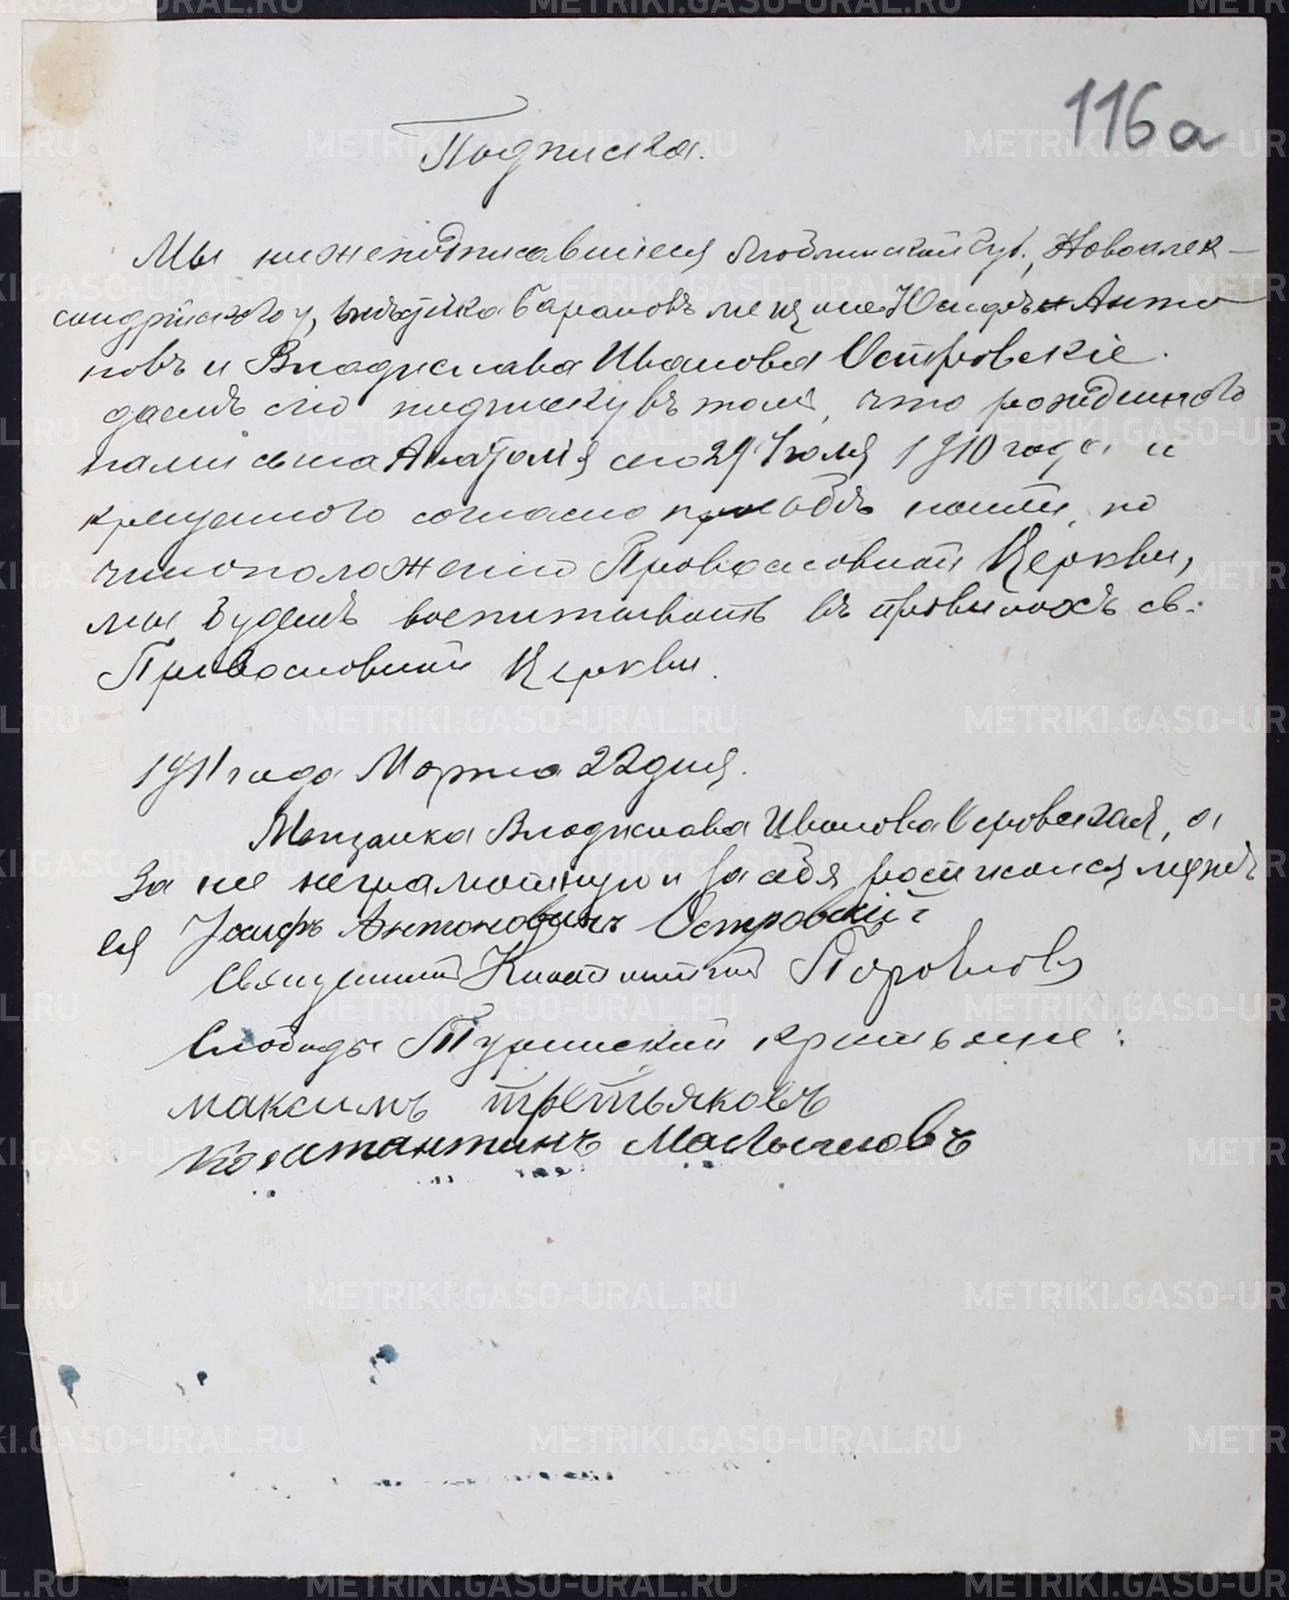 116а
Подписка.
Мы нижеподписавшіеся Люблинской губ., Новоалек-
сандрійскаго у, Барановъ мещане Юсифъ Анто
новъ и Владислава Иванова Островскіе.
даемъ сію подписку въ томъ, что рожденнаго
нами сына Анатолія сего 29 Іюля 1910 года и
крещеннаго согласно просьбѣ нашей, по
чиноположенію Православной Церкви,
мы будемъ воспитывать въ правилахъ св.
Православной Церкви.
1911 года Марта 22 дня.
Мещанка Владислава Иванова Островская, а
за нее неграмотную и за себя росписался мужъ
ея Іосифъ Антоновичъ Островскій
Священникъ Константинъ
Слободы Туринской крестьяне:
Максимъ Третьяковъ
Константинъ Масленковъ
METRIKI.GASO-URAL.RU